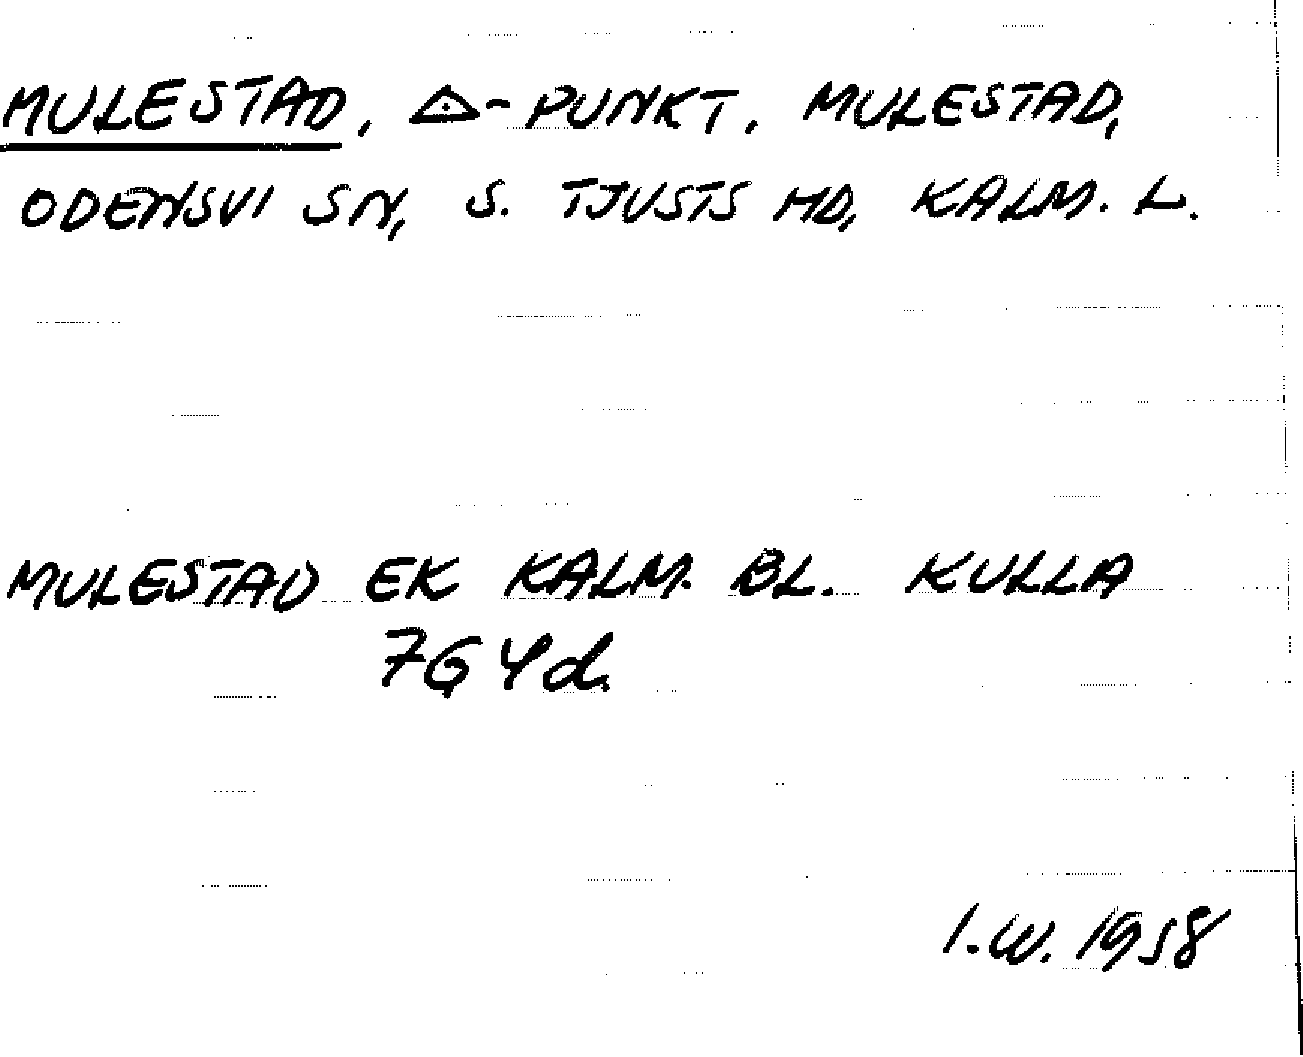 MULESTAD, △-PUNKT. MULESTAD,
ODENSVI SN, S. TJUSTS HD, KALM. L.
MULESTAD EK KALM. BL. KULLA
7G 4d.
I.W. 1958